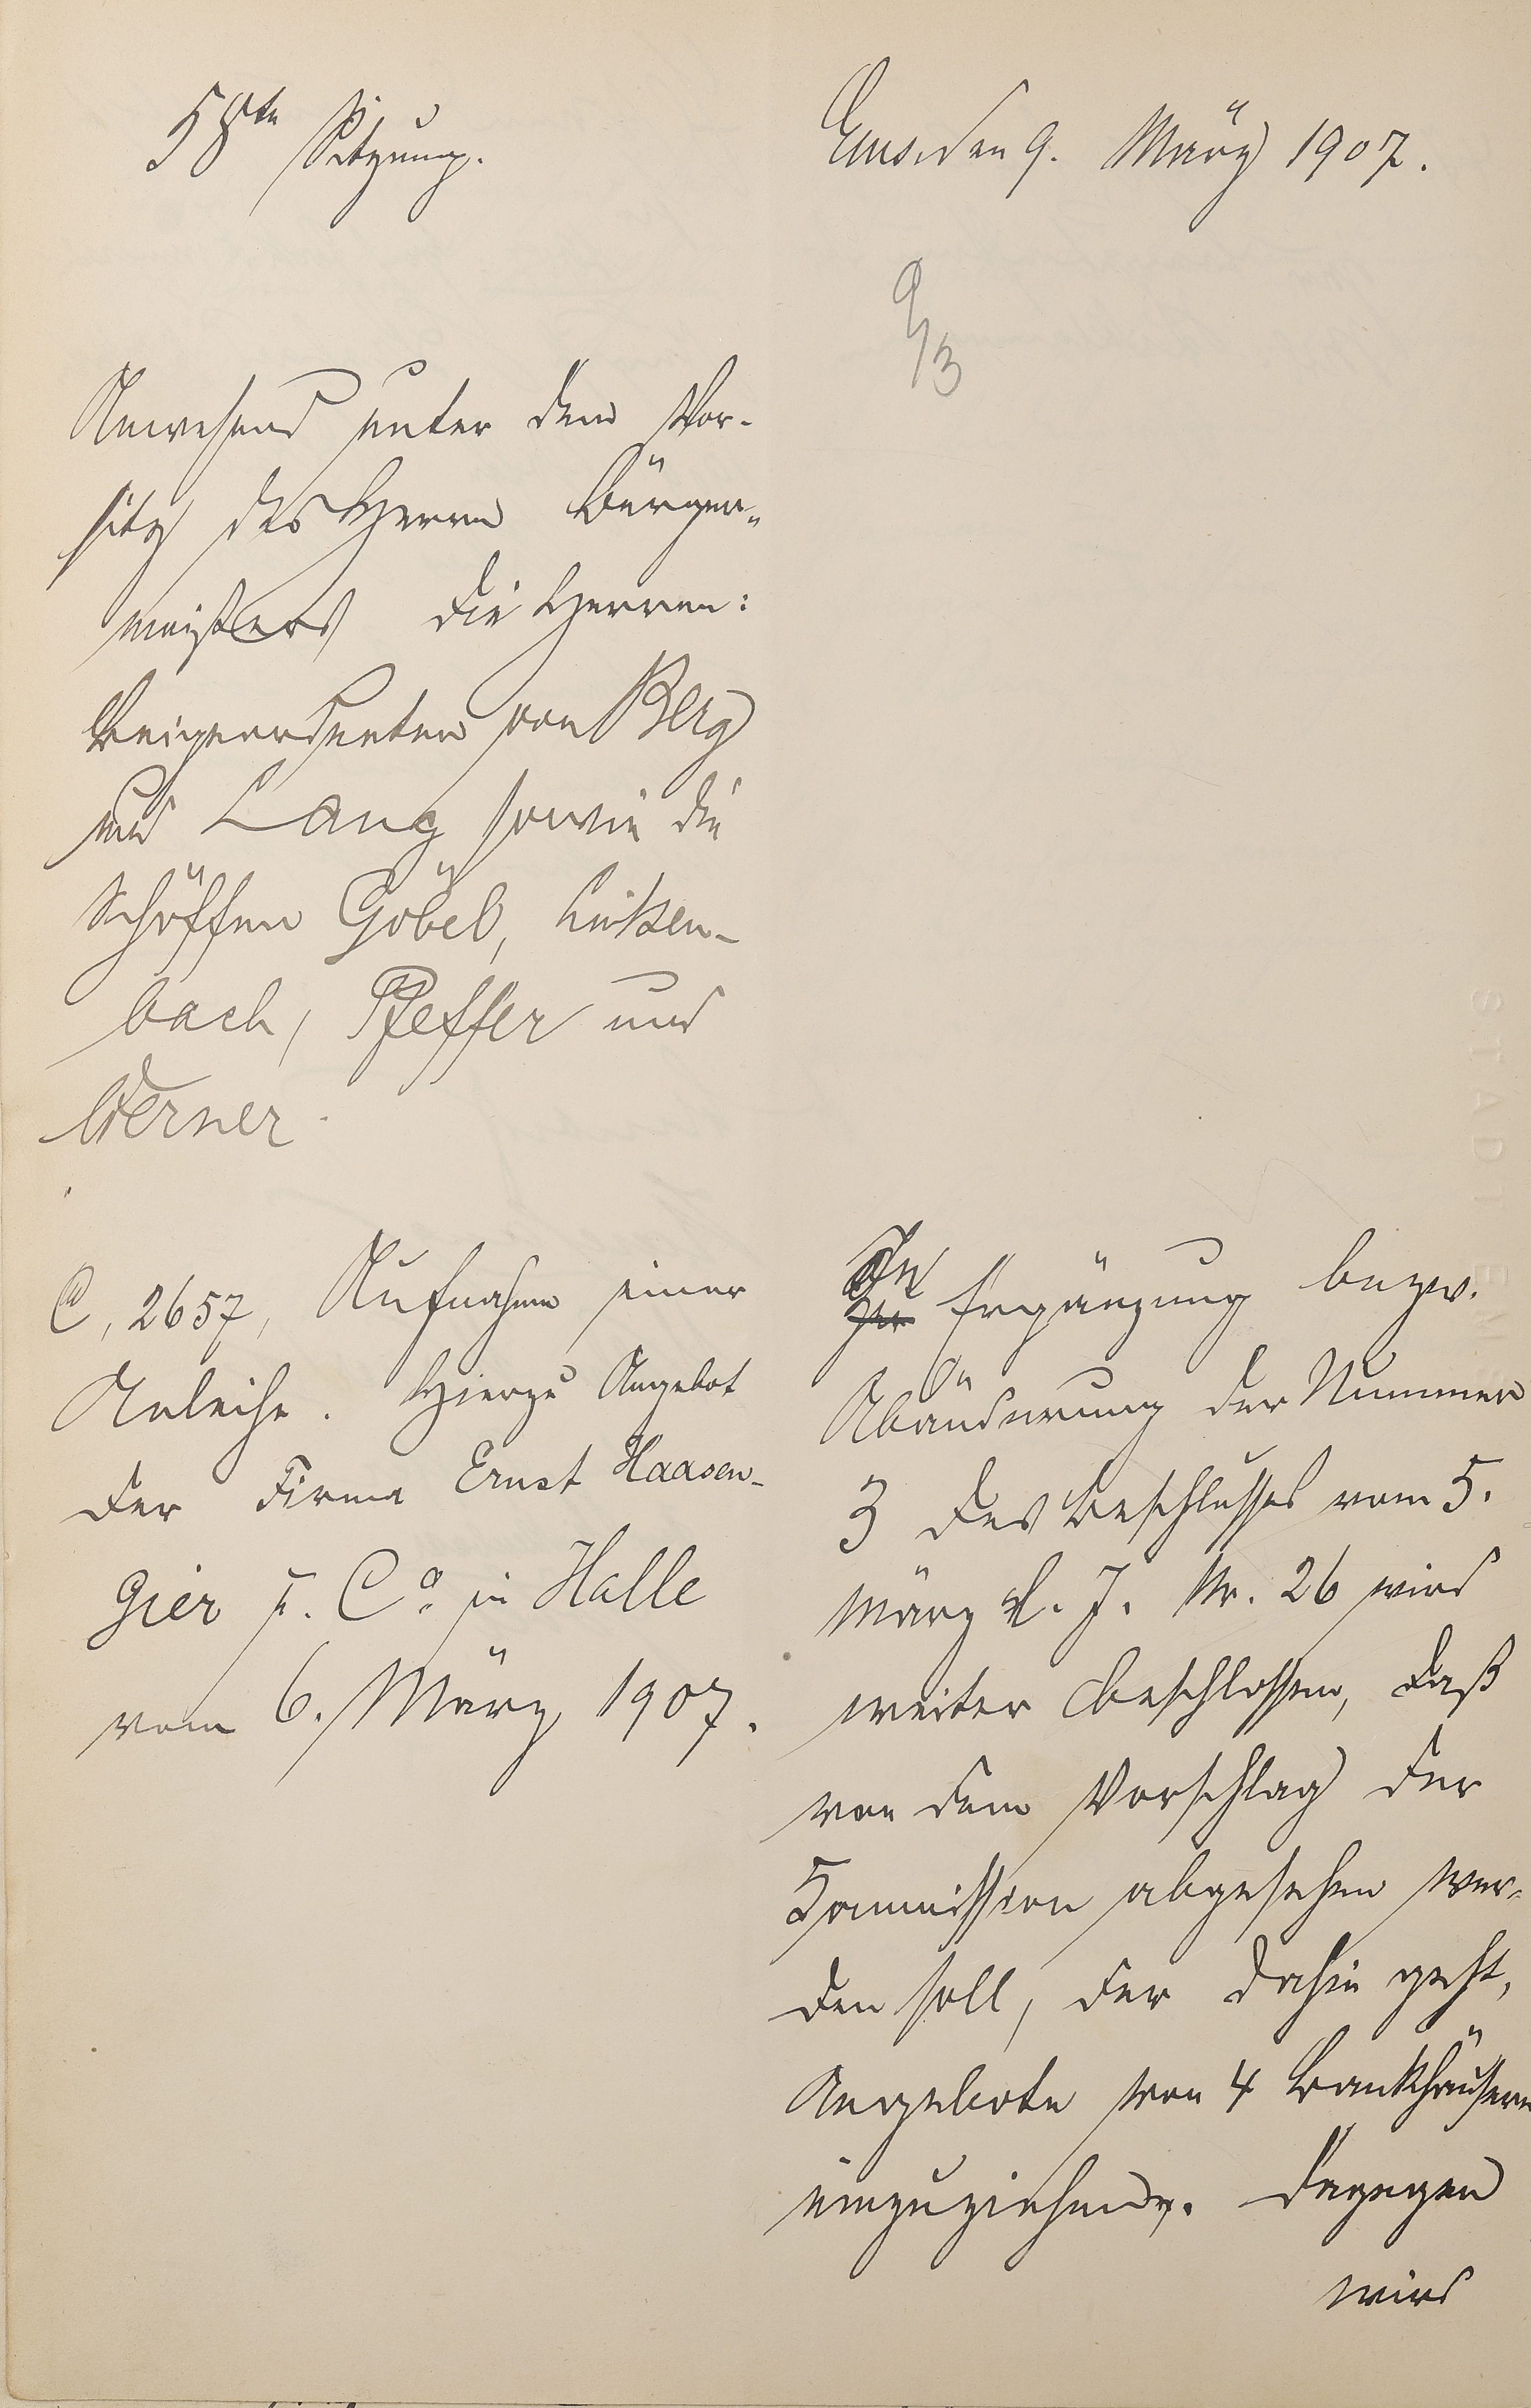 58te Sitzung.
Ems, den 9. März 1907.
9/3
Anwesend unter dem Vor-
sitz des Herrn Bürger-
meisters die Herren:
Beigeordneten von Berg
und Lang sowie die
Schöffen Göbel, Linken-
bach, Pfeffer und
Werner.
C, 2657, Aufnahme einer
Anleihe. Hierzu Angebot
der Firma Ernst Haasen-
gier u. Co. in Halle
vom 6. März 1907.
In
Ergänzung bezw.
Abänderung der Nummer
3 des Beschlusses vom 5.
März d. J. Nr. 26 wird
weiter beschlossen, daß
von dem Vorschlag der
Kommission abgesehen wer-
den soll, der dahin geht,
Angebote von 4 Bankhäusern
einzuziehen. Dagegen
wird
STADT EMS